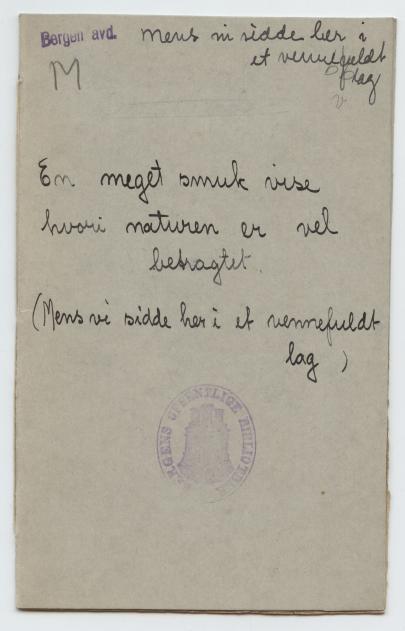 Bergen avd. Mens vi sidde her i
et vennefuldt
lag
v
M
En meget smuk vise
hvori naturen er vel
betragtet.
(Mens vi sidde her i et vennefuldt
lag )
BERGENS OFFENTLIGE BIBLIOTEK